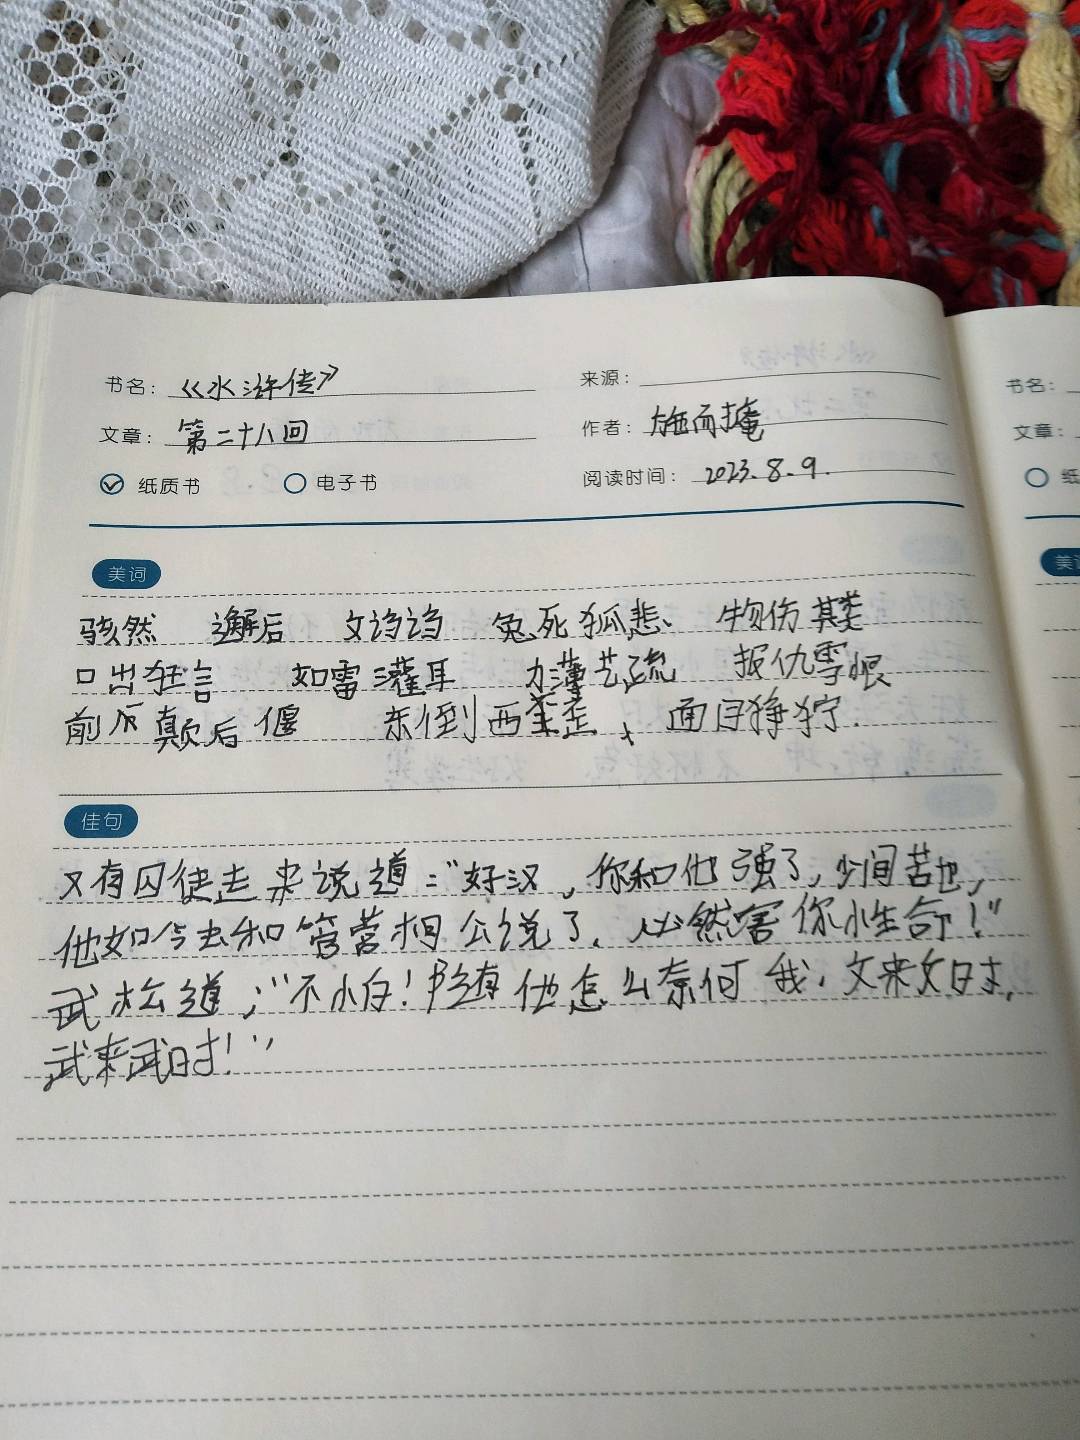 书名：《水浒传》 来源：
文章：第二十八回 作者：施而掩
纸质书 电子书 阅读时间：2023.8.9.
美词
骇然 邂后 文诌诌 兔死狐悲、 物伤其类
口出狂言 如雷灌耳 力薄艺疏 报仇雪恨
前 颠后偃 东倒西歪、面目狰狞.
佳句
又有囚徒走来说道："好汉，你和他强了，少间苦也，
他如今去和管营相公说了，必然害你性命！"
武松道；"不怕！随他怎么奈何我，文来文时，
武来武时！"
书名：
文章：
纸
美词